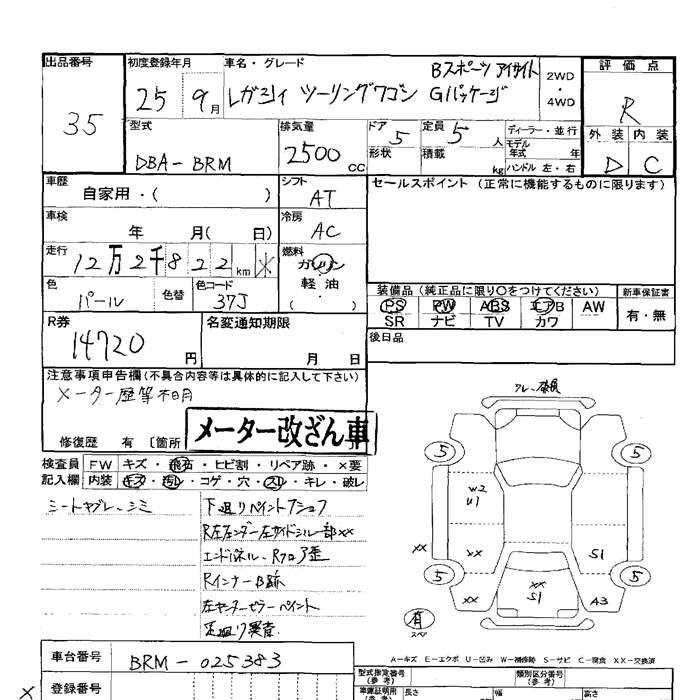 出品番号 35
初度登録年月 25 9月
車名・グレード Bスポーツ アイサイト
レガシィ ツーリングワゴン Gパッケージ
2WD・4WD
評価点 R
外装 D 内装 C
型式 DBA-BRM
排気量 2500 CC
ドア 5 形状
定員 5 人 積載 kg
ディーラー・並行
モデル年式 年
ハンドル 左・右
車歴 自家用・( )
シフト AT
セールスポイント (正常に機能するものに限ります)
車検 年 月( 日)
冷房 AC
走行 12万2千822km
燃料 ガソリン 軽・油 ( ・ )
色 パール 色替
色コード 37J
装備品 (純正品に限り○をつけてください)
PS PW ABS エアB AW
SR ナビ TV カワ
新車保証書 有・無
R券 14720円
名変通知期限 月 日
後日品
注意事項申告欄(不具合内容等は具体的に記入して下さい)
メーター歴等不明
修復歴 有 〔箇所
メーター改ざん車
検査員記入欄
FW キズ・飛石・ヒビ割・リペア跡・×要
内装 キズ・汚レ・コゲ・穴・スレ・キレ・破レ
シートヤブレ、シミ
下廻りペイント
エンドパネル、Rフロア歪
Rインナー
ペイント
5 5
W2
U1
XX XX S1
5 XX S1 5
XX A3
有 スペア
A-キズ E-エクボ U-凹み W-補修跡 S-サビ C-腐食 XX-交換済
車台番号 BRM-025383
型式指定番号(参考) 類別区分番号(参考)
登録番号
車庫証明用(参考) 長さ 幅 高さ